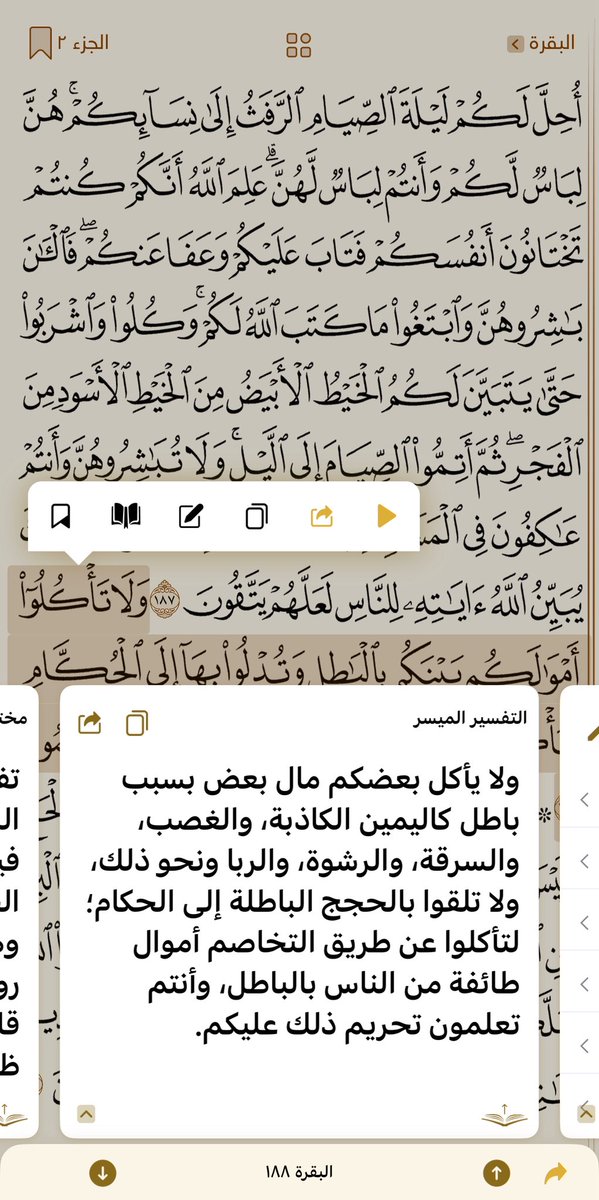 البقرة
الجزء ٢
أُحِلَّ لَكُمۡ لَيۡلَةَ ٱلصِّيَامِ ٱلرَّفَثُ إِلَىٰ نِسَآئِكُمۡۚ هُنَّ
لِبَاسٞ لَّكُمۡ وَأَنتُمۡ لِبَاسٞ لَّهُنَّۗ عَلِمَ ٱللَّهُ أَنَّكُمۡ كُنتُمۡ
تَخۡتَانُونَ أَنفُسَكُمۡ فَتَابَ عَلَيۡكُمۡ وَعَفَا عَنكُمۡۖ فَٱلۡـَٰٔنَ
بَٰشِرُوهُنَّ وَٱبۡتَغُواْ مَا كَتَبَ ٱللَّهُ لَكُمۡۚ وَكُلُواْ وَٱشۡرَبُواْ
حَتَّىٰ يَتَبَيَّنَ لَكُمُ ٱلۡخَيۡطُ ٱلۡأَبۡيَضُ مِنَ ٱلۡخَيۡطِ ٱلۡأَسۡوَدِ مِنَ
ٱلۡفَجۡرِۖ ثُمَّ أَتِمُّواْ ٱلصِّيَامَ إِلَى ٱلَّيۡلِۚ وَلَا تُبَٰشِرُوهُنَّ وَأَنتُمۡ
عَٰكِفُونَ فِي
يُبَيِّنُ ٱللَّهُ ءَايَٰتِهِۦ لِلنَّاسِ لَعَلَّهُمۡ يَتَّقُونَ ١٨٧ وَلَا تَأۡكُلُوٓاْ
أَمۡوَٰلَكُم بَيۡنَكُم بِٱلۡبَٰطِلِ وَتُدۡلُواْ بِهَآ إِلَى ٱلۡحُكَّامِ
التفسير الميسر
ولا يأكل بعضكم مال بعض بسبب
باطل كاليمين الكاذبة، والغصب،
والسرقة، والرشوة، والربا ونحو ذلك،
ولا تلقوا بالحجج الباطلة إلى الحكام؛
لتأكلوا عن طريق التخاصم أموال
طائفة من الناس بالباطل، وأنتم
تعلمون تحريم ذلك عليكم.
البقرة ١٨٨